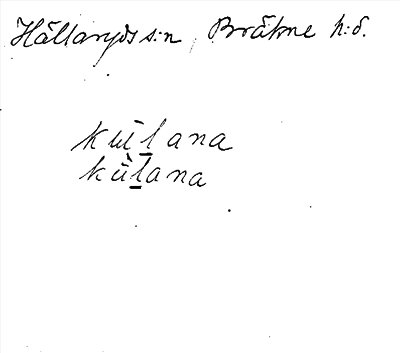 Hällaryds s:n, Bräkne h:d.
kūl̲ana
kǜl̲ana